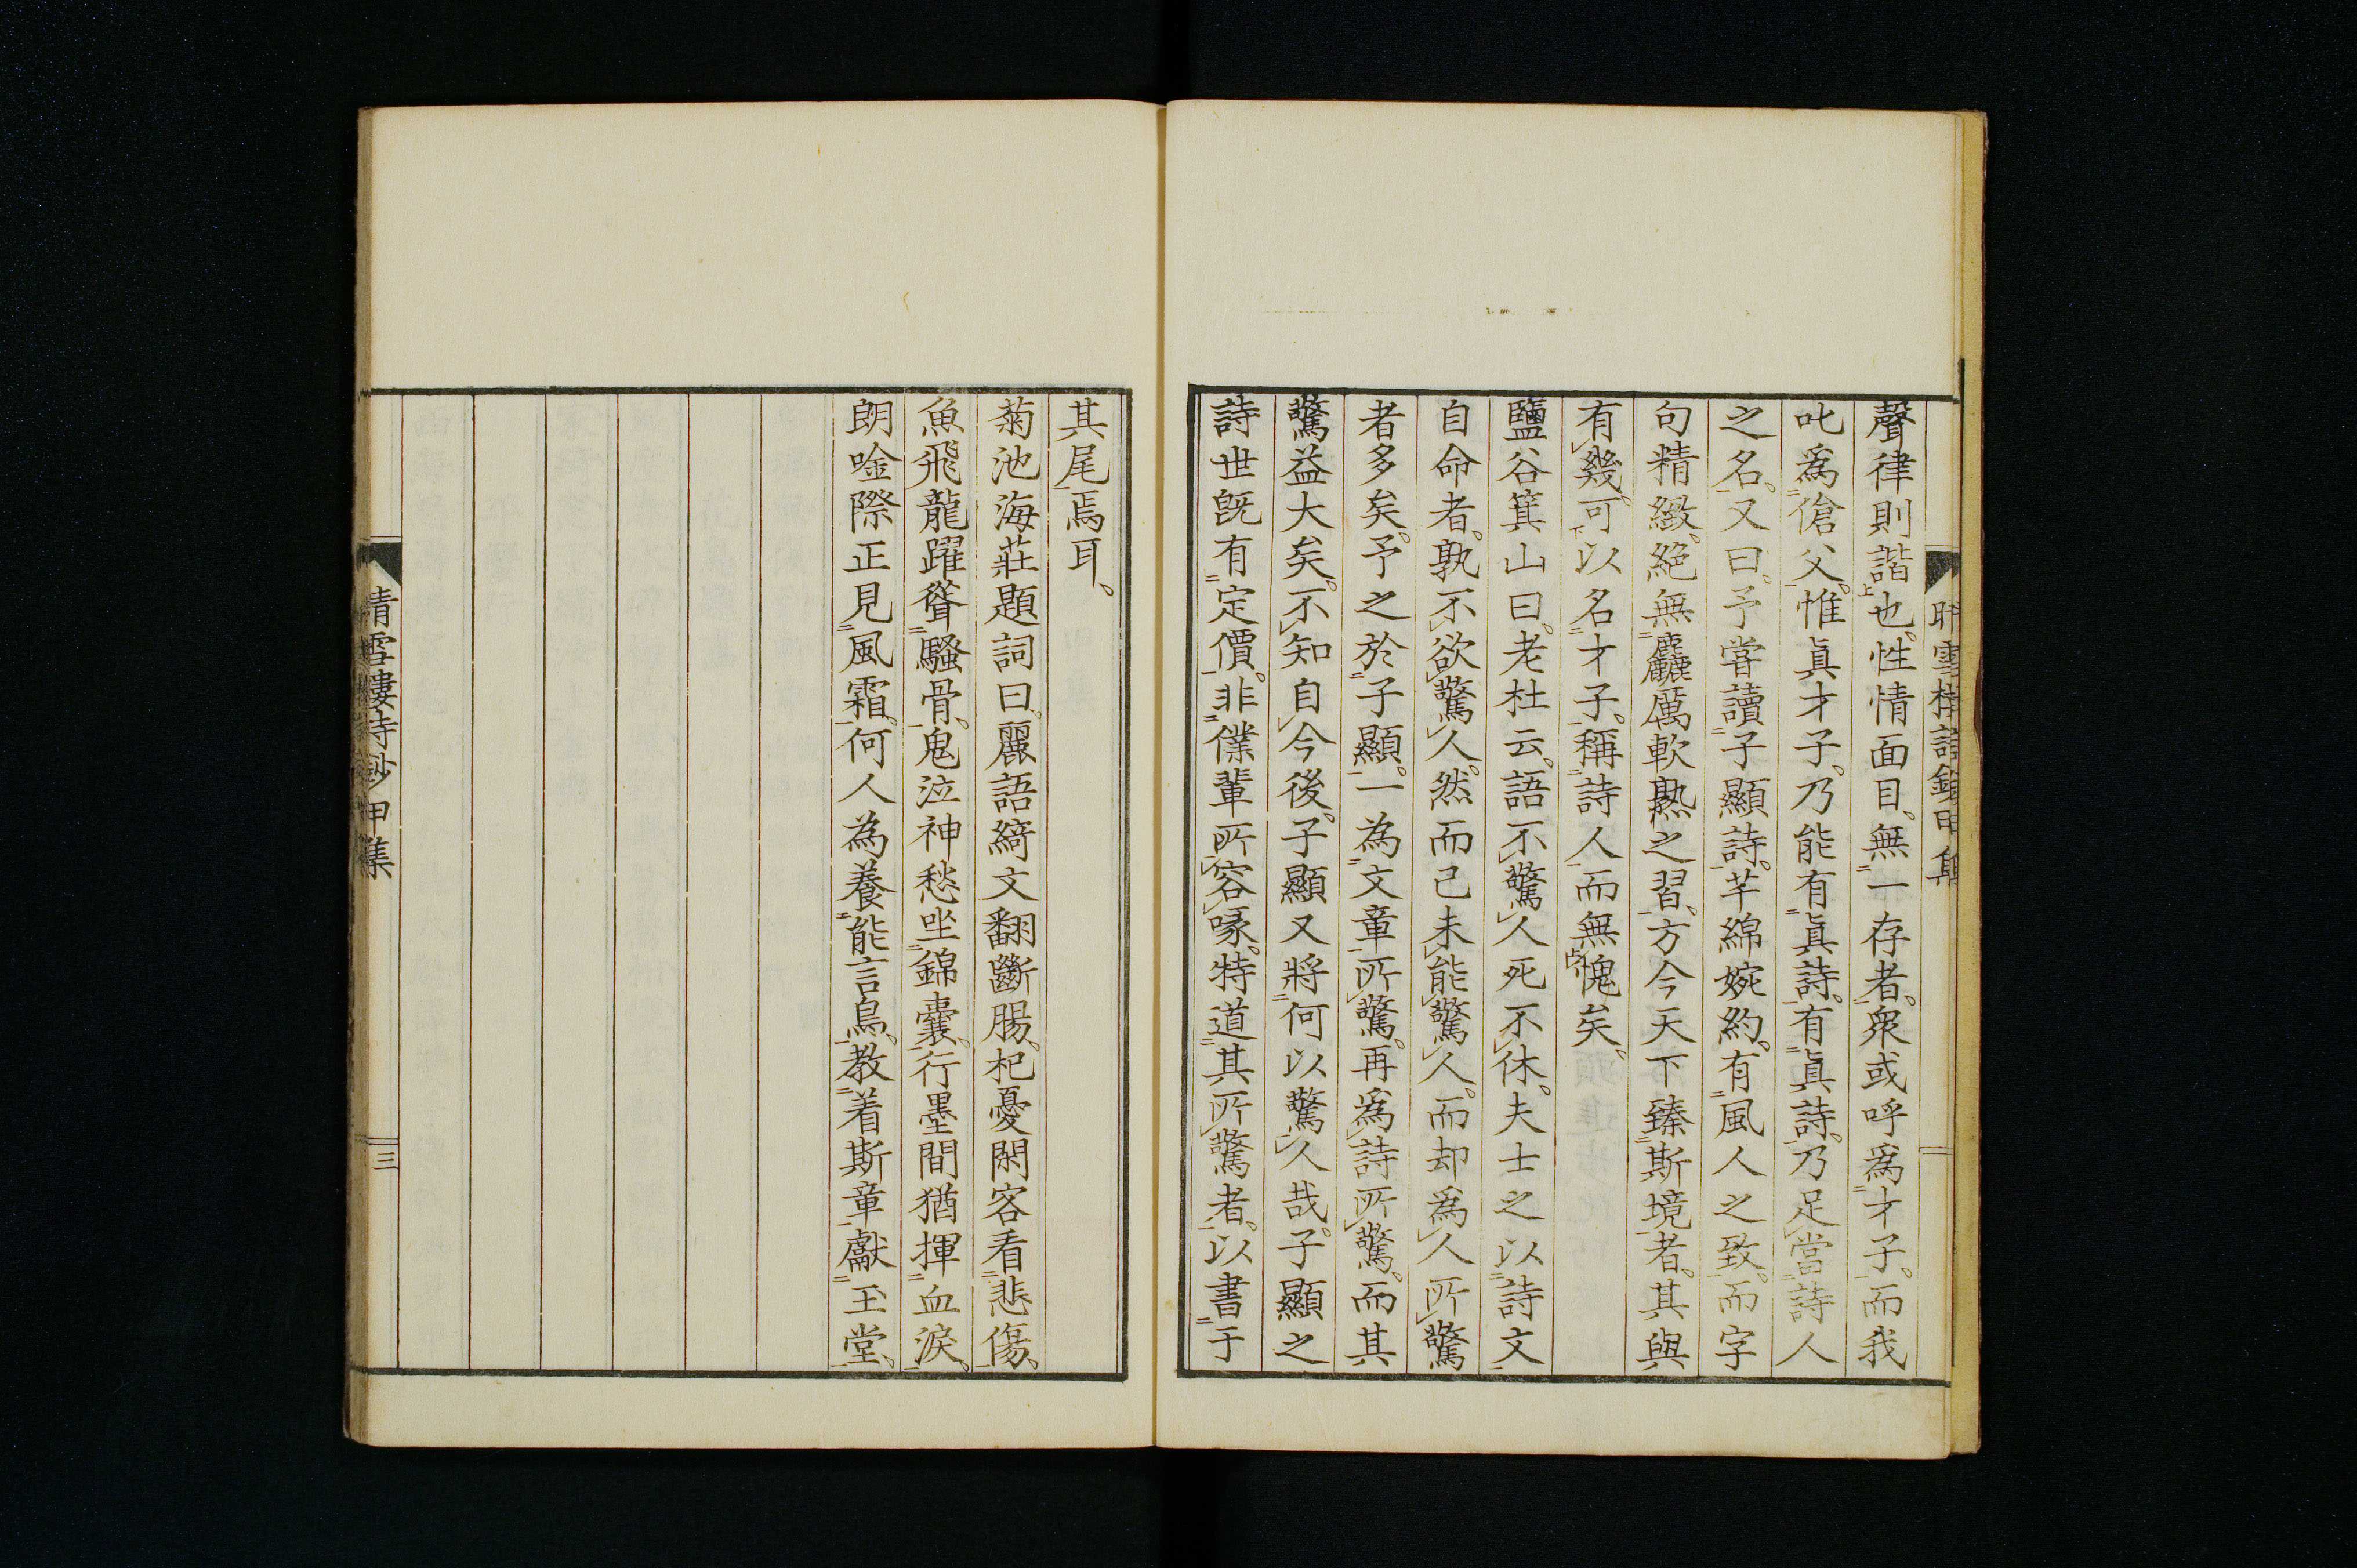 聲律則諧也。性情面目。無一存者。衆或呼爲才子。而我
叱爲傖父。惟眞才子。乃能有眞詩。有眞詩。乃足當詩人
之名。又曰。予嘗讀子顯詩。芊綿婉約。有風人之致。而字
句精緻。絕無麤厲軟熟之習。方今天下臻斯境者。其與
有幾。可以名才子。稱詩人而無愧矣。
鹽谷箕山曰。老杜云。語不驚人死不休。夫士之以詩文
自命者。孰不欲驚人。然而己未能驚人。而却爲人所驚
者多矣。予之於子顯。一為文章所驚。再爲詩所驚。而其
驚益大矣。不知自今後。子顯又將何以驚人哉。子顯之
詩世既有定價。非僕輩所容喙。特道其所驚者。以書于
其尾焉耳。
菊池海莊題詞曰。麗語綺文翻斷腸。杞憂閑客看悲傷。
魚飛龍躍聳騷骨。鬼泣神愁坐錦囊。行墨間猶揮血淚。
朗唫際正見風霜。何人為養能言鳥。教着斯章獻玉堂。
晴雪樓詩鈔甲集
三